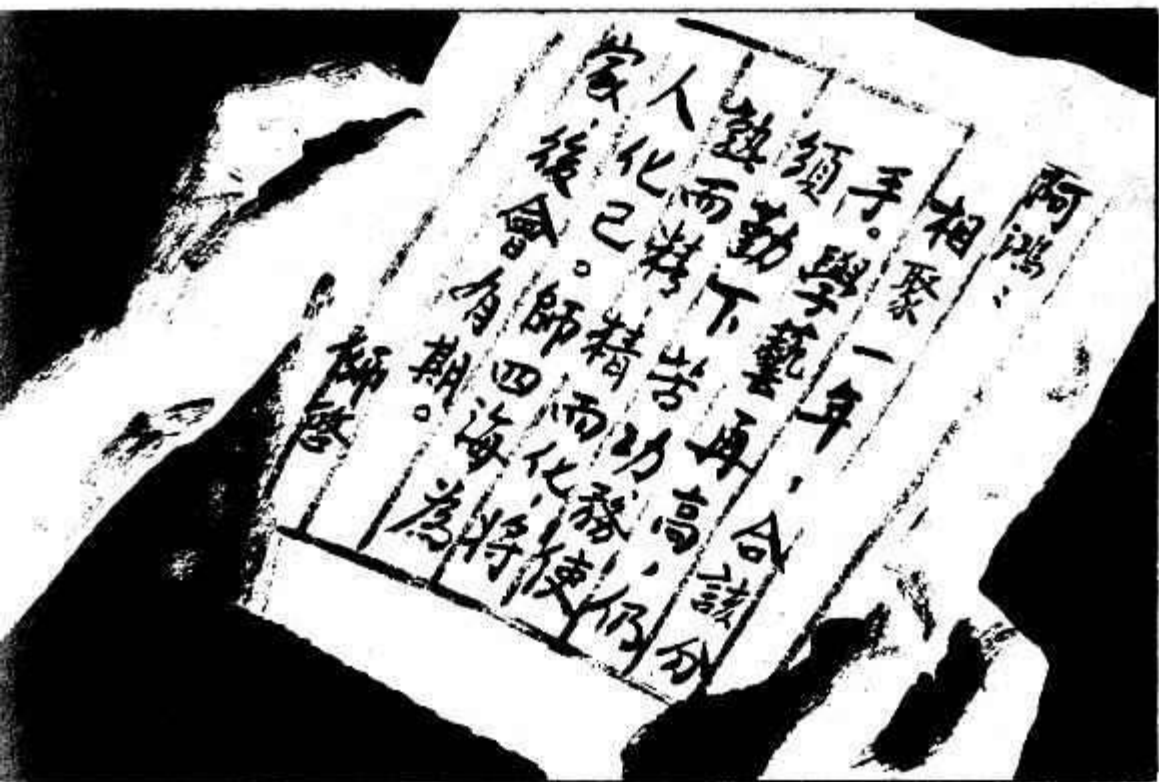 阿鴻：
相聚一年，合該分
手。學藝再高，仍
須勤下苦功，務使
熟而精，精而化，將
人化己。師四海為
家，後會有期。
師啓